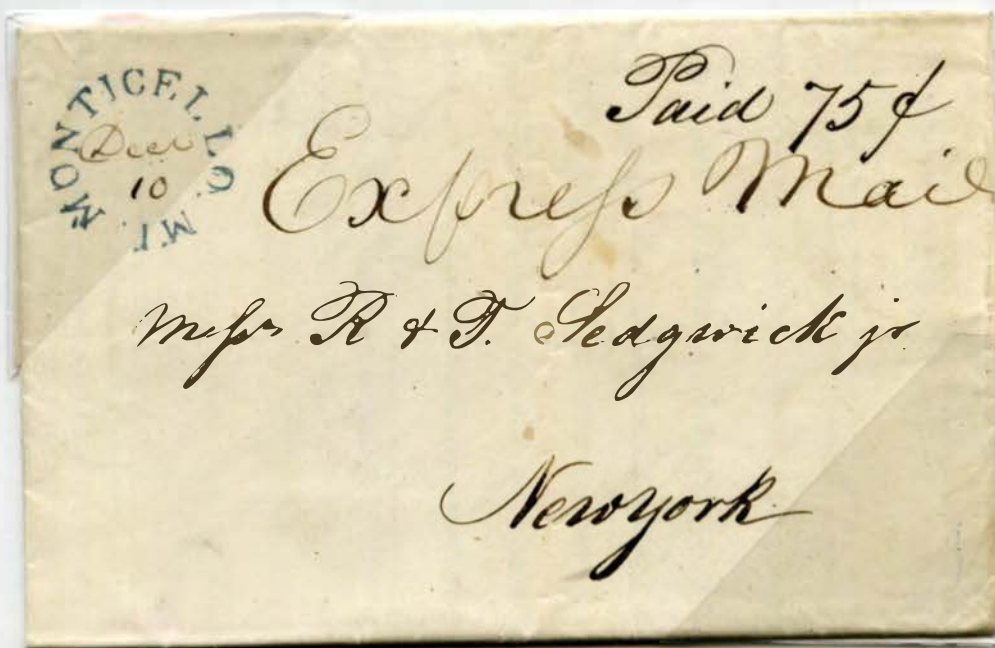 MONTICELLO. MI.
Decr
10
Paid 75 ¢
Express Mail
Messrs R & T. Sedgwick jr
Newyork